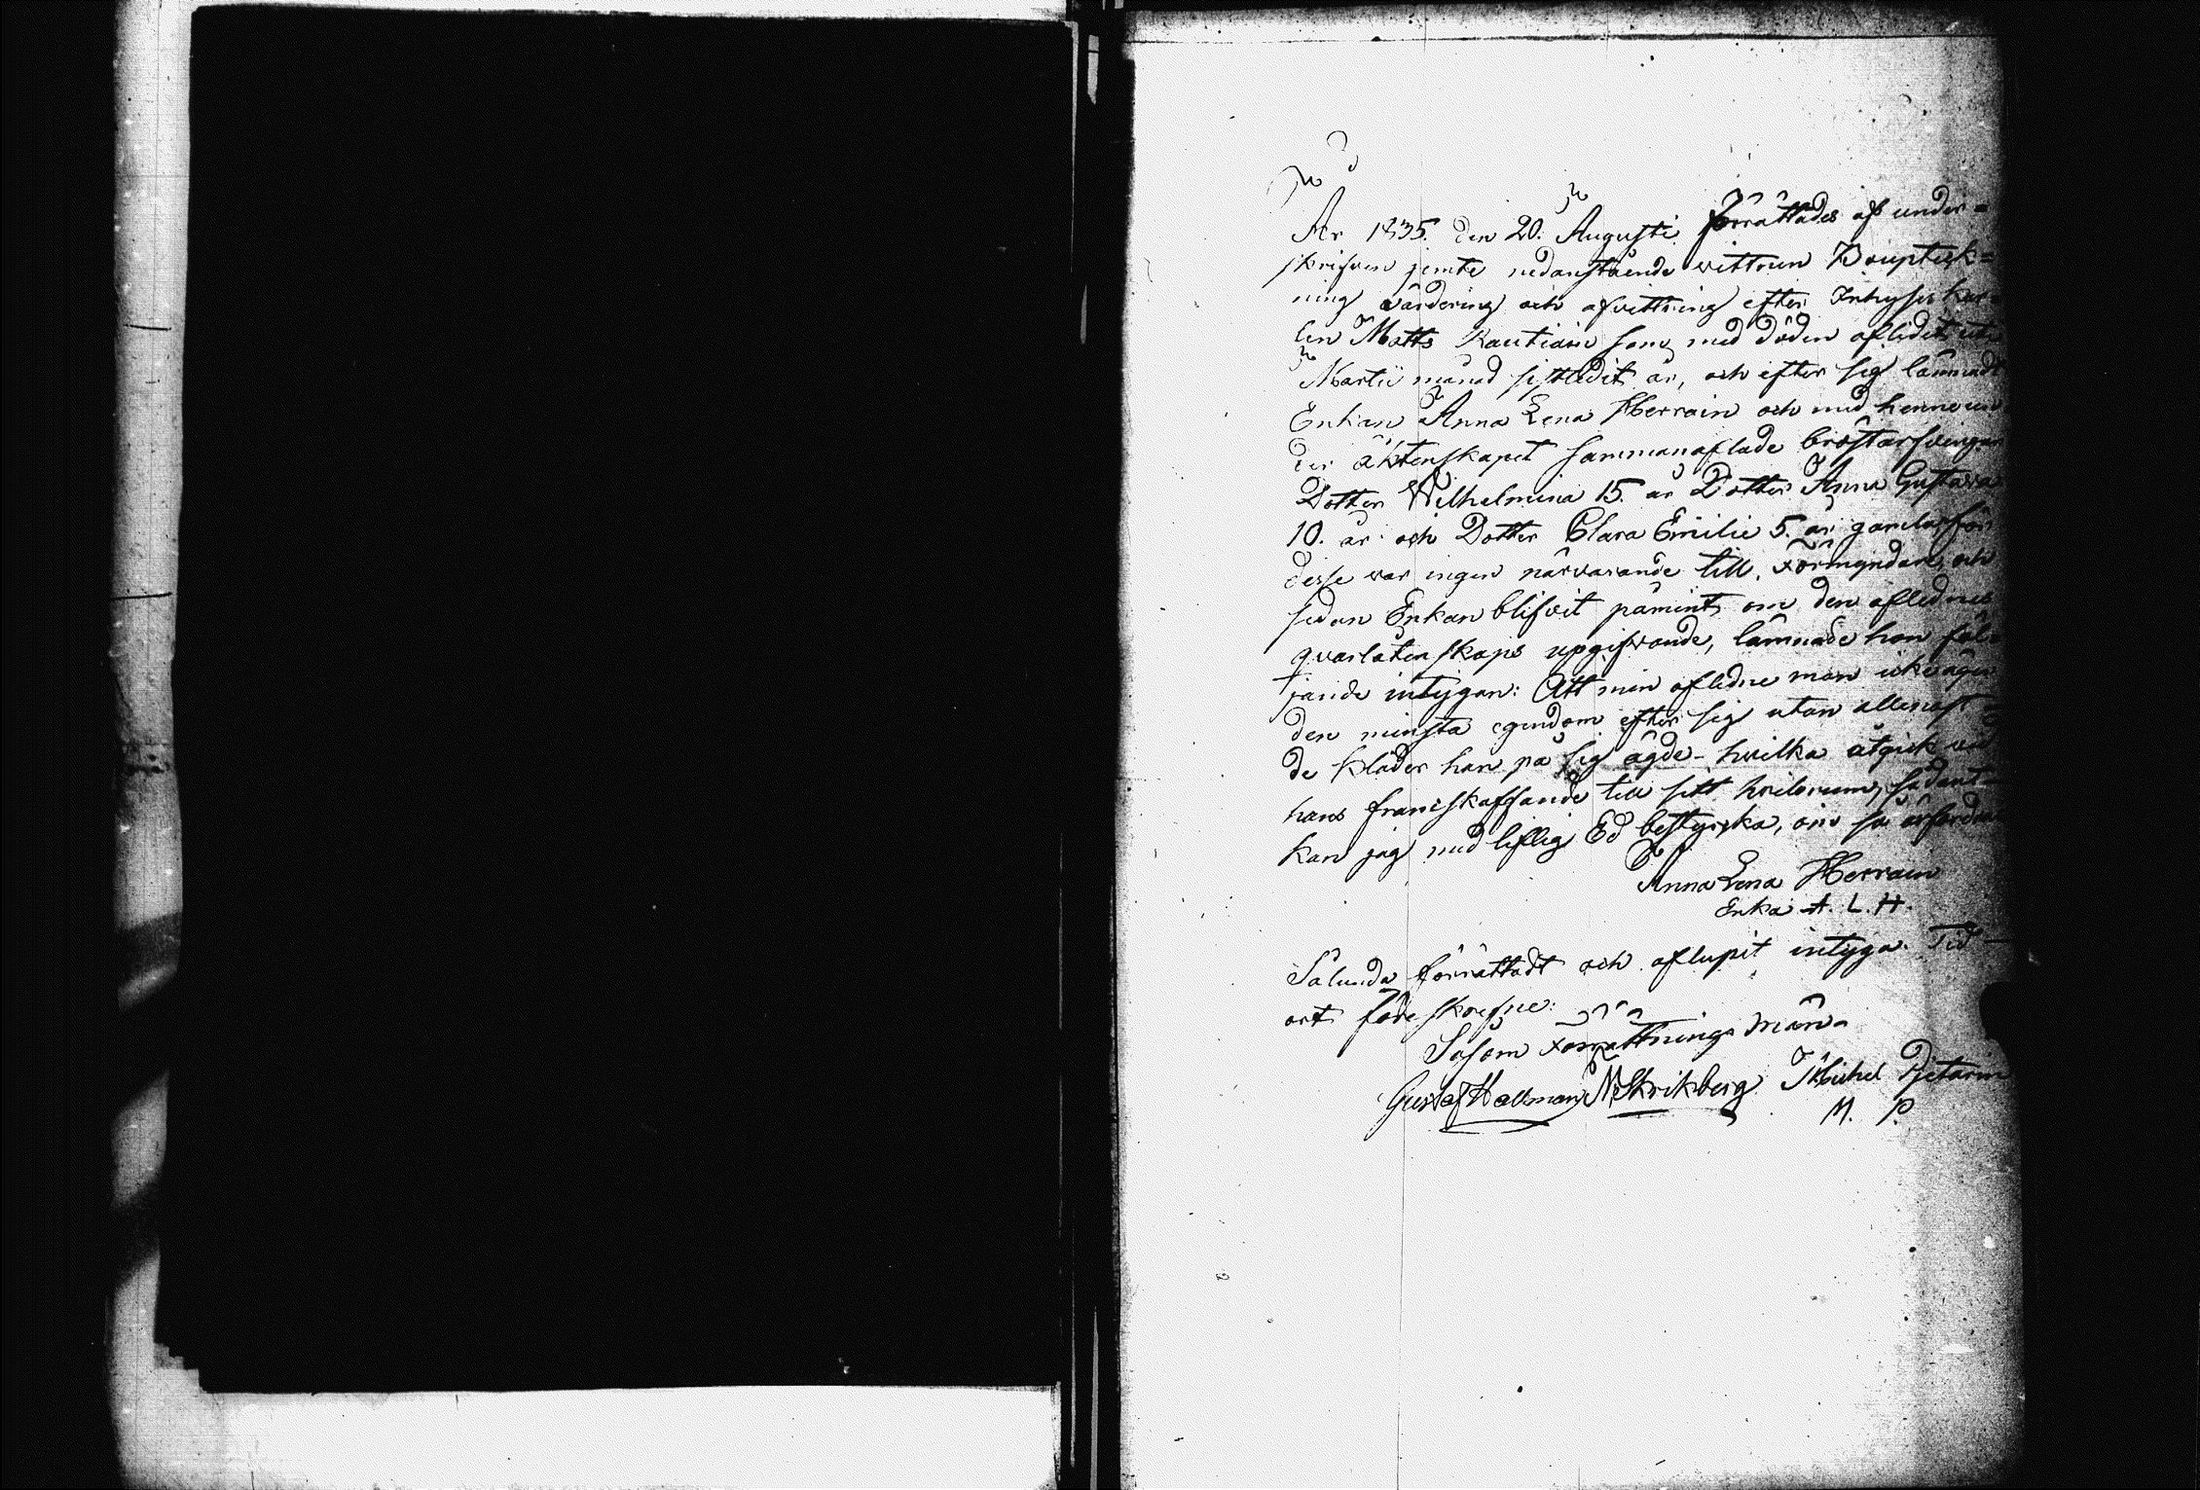 År 1835. den 20. Augusti förrättades af under=
skrifven jemte nedanstående vittnen Bouptek=
ning värdering och afvittring efter Inhyses kar=
len Matts Kautiain som med döden aflidit uti
Martii månad sistledit år, och efter sig lämnadt
Enkan Anna Lena Herrain och med henne un
der äktenskapet sammanaflade bröstarfvingar
Dotter Wilhelmina 15. år Dotter Anna Gustava
10. år och Dotter Clara Emilie 5. år gamla, för
desse var ingen närvarande till Förmyndare, och
sedan Enkan blifvit påmint om den aflednes
qvarlåtenskaps upgifvande, lämnade hon föl=
jande intygan: Att min aflidne man icke äger
den minsta egendom efter sig utan allenast
de kläder han på sig ägde – hvilka åtgick vid
hans framskaffande till sitt hvilorum, sådant
kan jag med liflig Ed bestyrka, om så erfordras
Anna Lena Herrain
Enka A. L. H.
Sålunda förrättadt och aflupit intyga. Tid
ort före skrefne:
Såsom Förrättnings män
Gustaf Hallman M Skrikberg Michel Pjetarin
M. P.